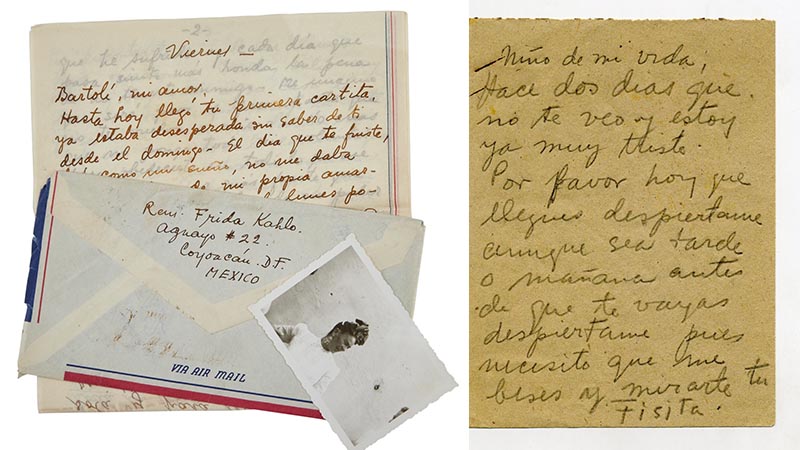 -2-
Viernes
Bartolí, mi amor
Hasta hoy llegó tu primera cartita,
ya estaba desesperada sin saber de ti
desde el domingo. El día que te fuiste,
como un sueño, no me daba
de mi propia amar-
lunes po-
Rem. Frida Kahlo.
Aguayo # 22.
Coyoacán. D.F.
MEXICO
VIA AIR MAIL
Niño de mi vida,
Hace dos dias que
no te veo y estoy
ya muy triste.
Por favor hoy que
llegues despiertame
aunque sea tarde
o mañana antes
de que te vayas
despiertame pues
necesito que me
beses y mirarte tu
Fisita.